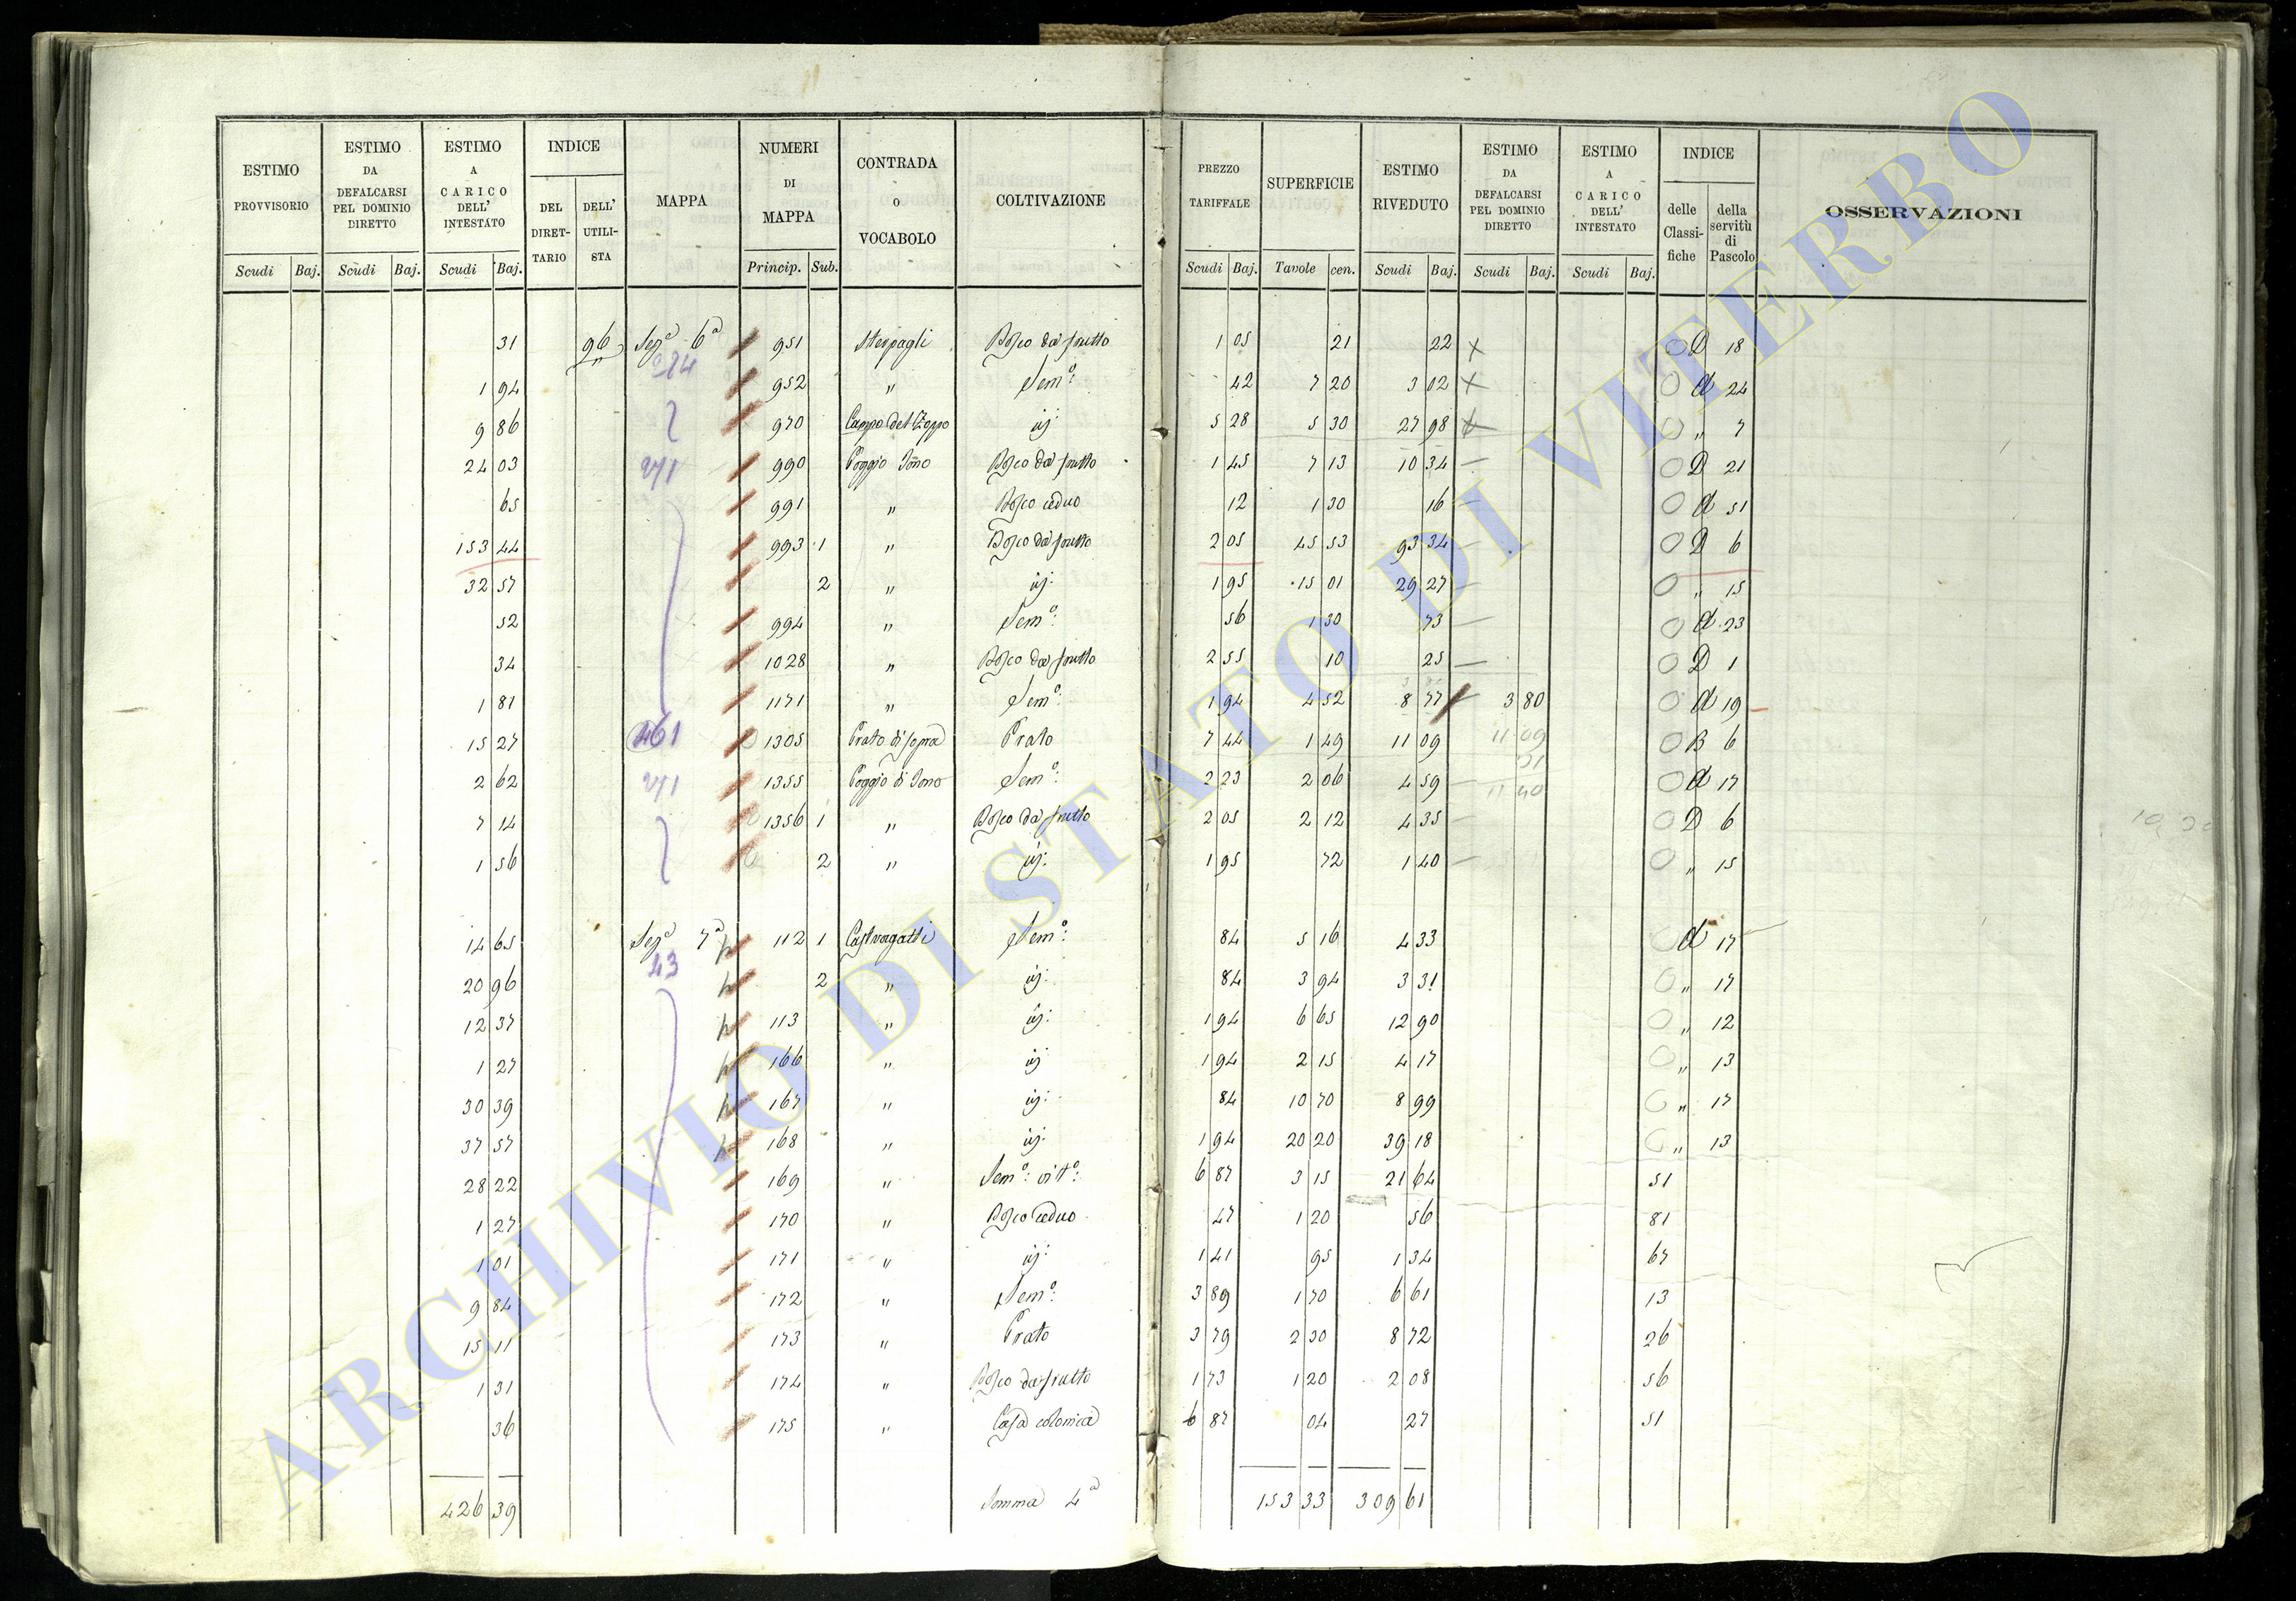 ESTIMO PROVVISORIO | ESTIMO DA DEFALCARSI PEL DOMINIO DIRETTO | ESTIMO A CARICO DELL' INTESTATO | INDICE DEL DIRETTARIO | DELL' UTILISTA | MAPPA | NUMERI DI MAPPA | CONTRADA o VOCABOLO | COLTIVAZIONE | PREZZO TARIFFALE | SUPERFICIE | ESTIMO RIVEDUTO | ESTIMO DA DEFALCARSI PEL DOMINIO DIRETTO | ESTIMO A CARICO DELL' INTESTATO | INDICE delle Classifiche | della servitù di Pascolo | OSSERVAZIONI
Scudi | Baj. | Scudi | Baj. | Scudi | Baj. | Princip. | Sub. | Scudi | Baj. | Tavole | cen. | Scudi | Baj. | Scudi | Baj. | Scudi | Baj.
31 | 96 | Sez.a 6a | 951 | Sterpagli | Bosco da frutto | 1 05 | 21 | 22 | D 18
284
1 94 | 952 | " | Sem.o: | 42 | 7 20 | 3 02 | A 24
9 86 | 970 | Campo del Zoppo | id: | 5 28 | 5 30 | 27 98 | " 7
24 03 | 271 | 990 | Poggio Tono | Bosco da frutto | 1 45 | 7 13 | 10 34 | D 21
65 | 991 | " | Bosco ceduo | 12 | 1 30 | 16 | A 51
153 44 | 993 1 | " | Bosco da frutto | 2 05 | 45 53 | 93 34 | D 6
32 57 | 2 | " | id: | 1 95 | 15 01 | 29 27 | " 15
52 | 994 | " | Sem.o: | 56 | 1 30 | 73 | A 23
34 | 1028 | " | Bosco da frutto | 2 55 | 10 | 25 | D 1
1 81 | 1171 | " | Sem.o: | 1 94 | 4 52 | 8 77 | 3 80 | A 19
15 27 | 461 | 1305 | Prato di sopra | Prato | 7 44 | 1 49 | 11 09 | 11 09 | B 6
2 62 | 271 | 1355 | Poggio di Tono | Sem.o: | 2 23 | 2 06 | 4 59 | 11 40 | A 17
7 14 | 1356 1 | " | Bosco da frutto | 2 05 | 2 12 | 4 35 | D 6
1 56 | 2 | " | id: | 1 95 | 72 | 1 40 | " 15
14 65 | Sez.a 7a | 112 1 | Castragatti | Sem.o: | 84 | 5 16 | 4 33 | A 17
43
20 96 | 2 | " | id: | 84 | 3 94 | 3 31 | " 17
12 37 | 113 | " | id: | 1 94 | 6 65 | 12 90 | " 12
1 27 | 166 | " | id | 1 94 | 2 15 | 4 17 | " 13
30 39 | 167 | " | id: | 84 | 10 70 | 8 99 | " 17
37 57 | 168 | " | id: | 1 94 | 20 20 | 39 18 | " 13
28 22 | 169 | " | Sem.o: vit.o: | 6 87 | 3 15 | 21 64 | 51
1 27 | 170 | " | Bosco ceduo | 47 | 1 20 | 56 | 81
1 01 | 171 | " | id: | 1 41 | 95 | 1 34 | 67
9 84 | 172 | " | Sem.o: | 3 89 | 1 70 | 6 61 | 13
15 11 | 173 | " | Prato | 3 79 | 2 30 | 8 72 | 26
1 31 | 174 | " | Bosco da frutto | 1 73 | 1 20 | 2 08 | 56
36 | 175 | " | Casa colonica | 6 87 | 04 | 27 | 51
426 39 | Somma 4a | 153 33 | 309 61
ARCHIVIO DI STATO DI VITERBO